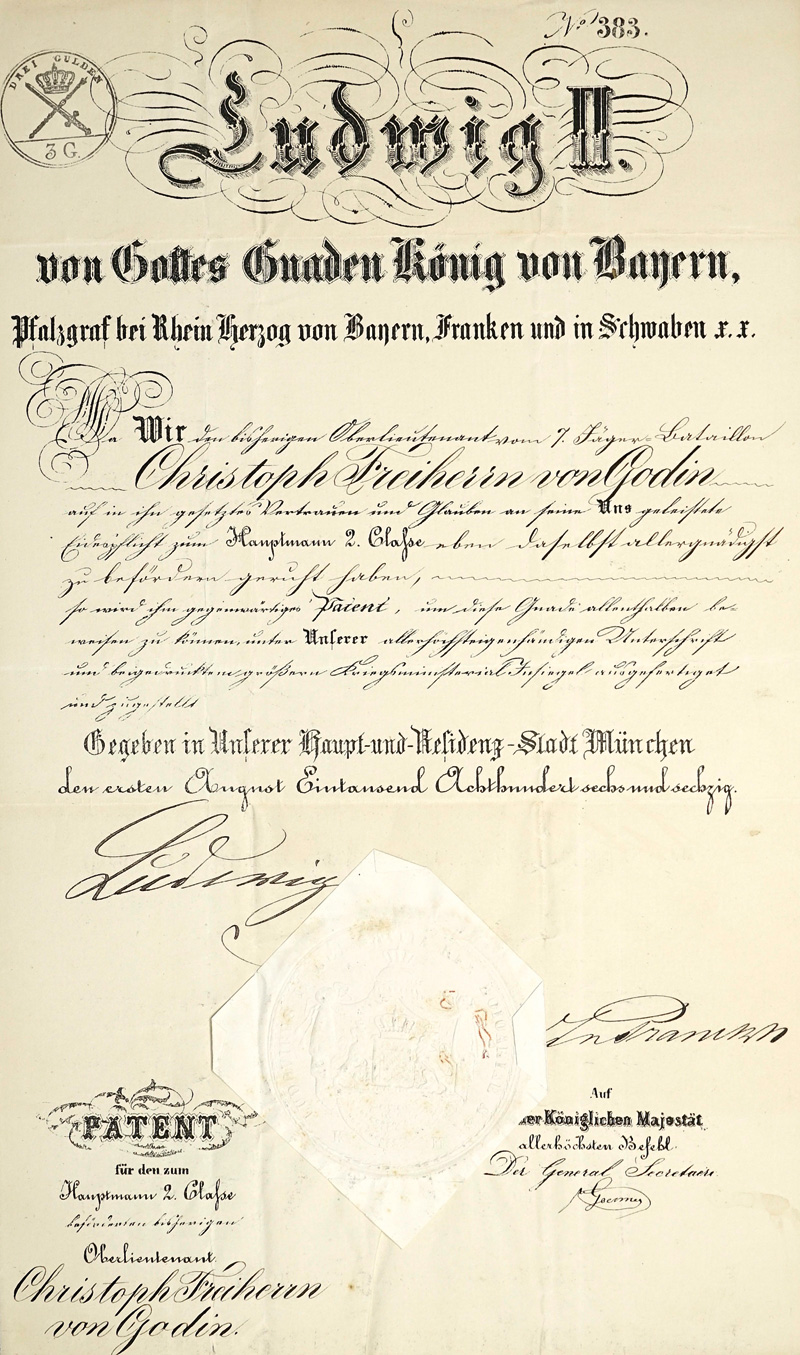 No 383.
DREI GULDEN
3 G.
Ludwig II.
von Gottes Gnaden König von Bayern,
Pfalzgraf bei Rhein Herzog von Bayern, Franken und in Schwaben x. x.
Da Wir den bisherigen Oberlieutenant vom 7. Jäger-Bataillon
Christoph Freiherrn von Godin
auf in ihn gesetztes Vertrauen und Glauben an seine Uns geleistete
Eidespflicht zum Hauptmann 2. Classe eben daselbst allergnädigst
zu befördern geruht haben,
so wird ihm gegenwärtiges Patent, um diese Gnade allenthalben be-
weisen zu können, unter Unserer allerhöchsteigenhändigen Unterschrift
und beigedrucktem größern Kriegsministerial-Insiegel ausgefertiget
und zugestellt
Gegeben in Unserer Haupt-und-Residenz-Stadt München
den ersten August Eintausend Achthundert sechs und sechzig.
Ludwig
Auf
der Königlichen Majestät
allerhöchsten Befehl
Der General Secretaere
PATENT
für den zum
Hauptmann 2. Classe
beförderten bisherigen
Oberlieutenant
Christoph Freiherrn
von Godin.